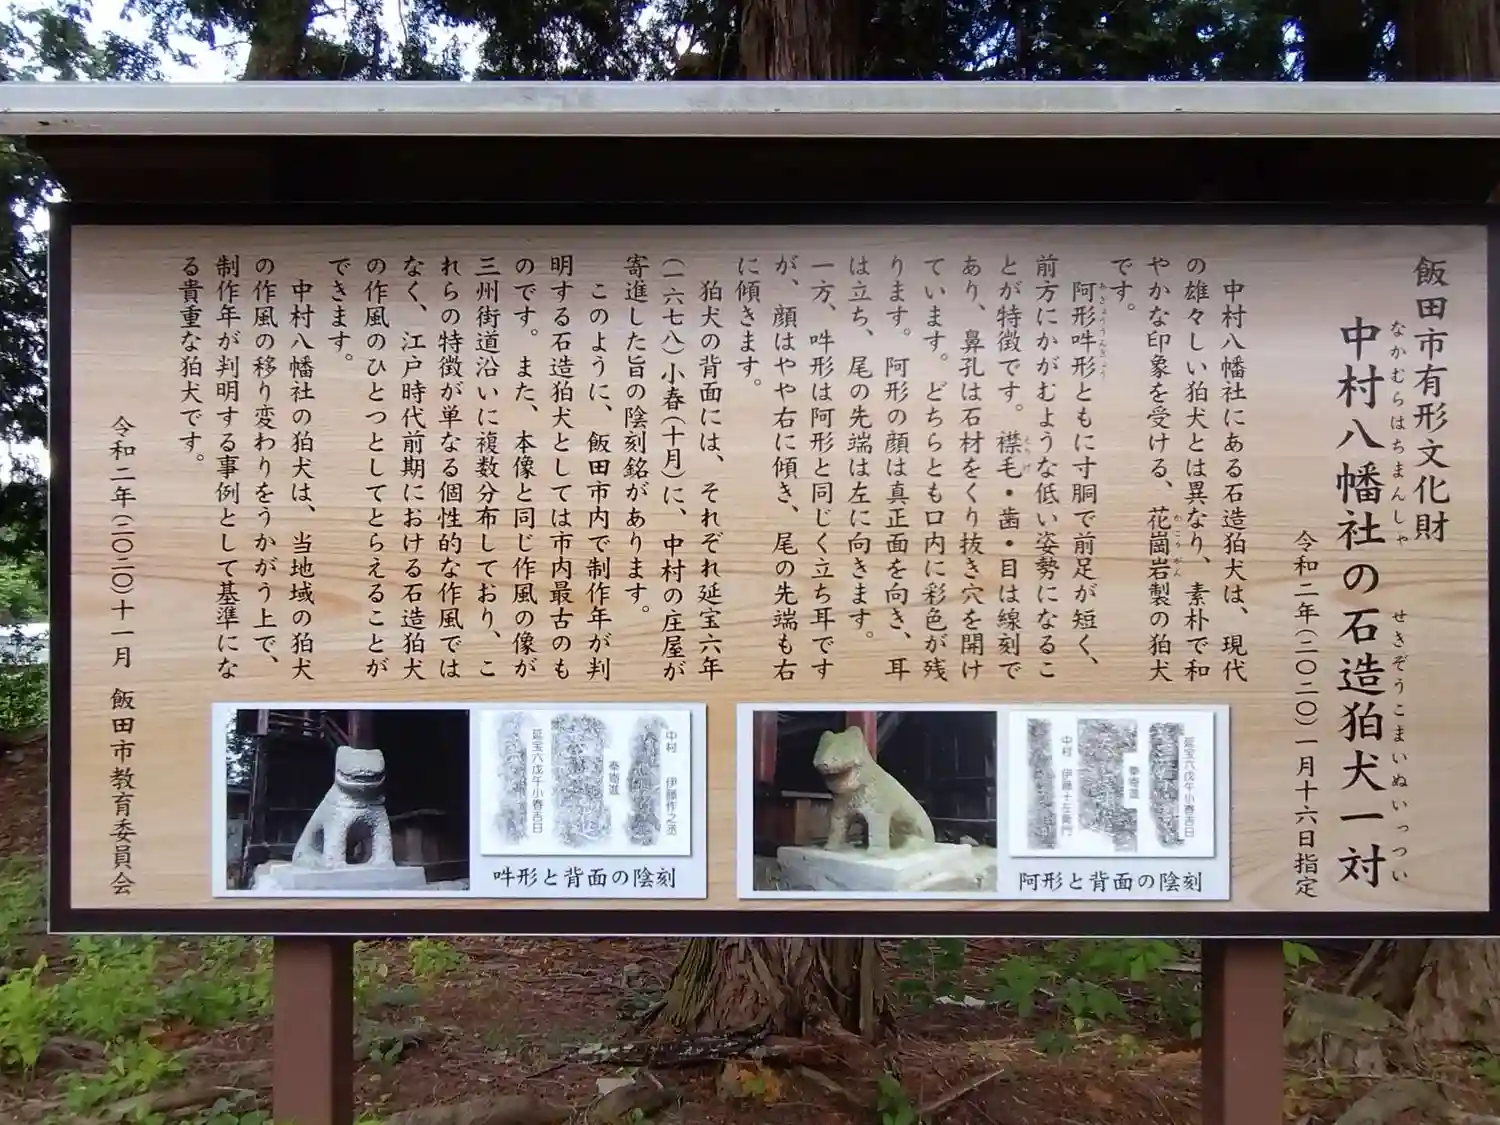 飯田市有形文化財
なかむらはちまんしゃ　せきぞうこまいぬいっつい
中村八幡社の石造狛犬一対
令和二年(二〇二〇)一月十六日指定
中村八幡社にある石造狛犬は、現代
の雄々しい狛犬とは異なり、素朴で和
やかな印象を受ける、花崗岩製の狛犬
かこうがん
です。
阿形吽形ともに寸胴で前足が短く、
あぎょううんぎょう
前方にかがむような低い姿勢になるこ
とが特徴です。襟毛・歯・目は線刻で
えりげ
あり、鼻孔は石材をくり抜き穴を開け
ています。どちらとも口内に彩色が残
ります。阿形の顔は真正面を向き、耳
は立ち、尾の先端は左に向きます。
一方、吽形は阿形と同じく立ち耳です
が、顔はやや右に傾き、尾の先端も右
に傾きます。
狛犬の背面には、それぞれ延宝六年
(一六七八)小春(十月)に、中村の庄屋が
寄進した旨の陰刻銘があります。
このように、飯田市内で制作年が判
明する石造狛犬としては市内最古のも
のです。また、本像と同じ作風の像が
三州街道沿いに複数分布しており、こ
れらの特徴が単なる個性的な作風では
なく、江戸時代前期における石造狛犬
の作風のひとつとしてとらえることが
できます。
中村八幡社の狛犬は、当地域の狛犬
の作風の移り変わりをうかがう上で、
制作年が判明する事例として基準にな
る貴重な狛犬です。
令和二年(二〇二〇)十一月　飯田市教育委員会
延宝六戊午小春吉日
奉寄進
中村　伊藤十左衛門
阿形と背面の陰刻
中村　伊藤作之丞
奉寄進
延宝六戊午小春吉日
吽形と背面の陰刻